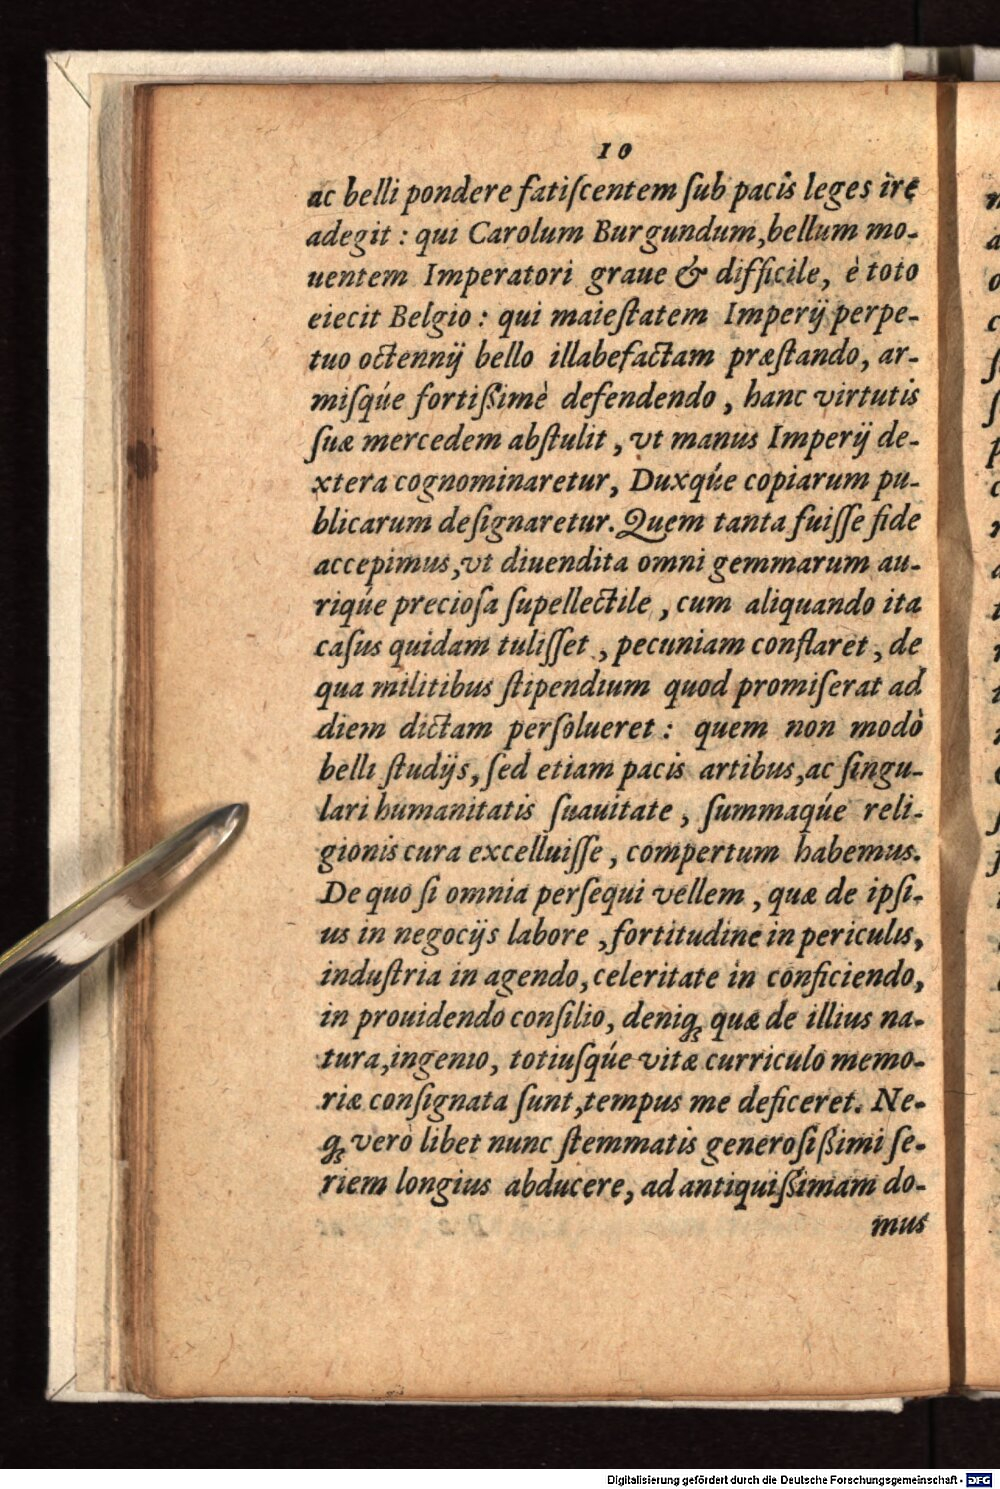 10
ac belli pondere fatiſcentem ſub pacis leges ire
adegit : qui Carolum Burgundum,bellum mo-
uentem Imperatori graue & difficile, è toto
eiecit Belgio : qui maieſtatem Imperij perpe-
tuo octennij bello illabefactam præſtando, ar-
miſqúe fortißimè defendendo , hanc virtutis
ſuæ mercedem abſtulit , vt manus Imperij de-
xtera cognominaretur, Duxqúe copiarum pu-
blicarum deſignaretur. Quem tanta fuiſſe fide
accepimus,vt diuendita omni gemmarum au-
riqúe precioſa ſupellectile , cum aliquando ita
caſus quidam tuliſſet , pecuniam conflaret , de
qua militibus ſtipendium quod promiſerat ad
diem dictam perſolueret : quem non modò
belli ſtudijs, ſed etiam pacis artibus,ac ſingu-
lari humanitatis ſuauitate , ſummaqúe reli-
gionis cura excelluiſſe , compertum habemus.
De quo ſi omnia perſequi vellem , quæ de ipſi-
us in negocijs labore ,fortitudine in periculis,
induſtria in agendo, celeritate in conficiendo,
in prouidendo conſilio, deniqꝫ quæ de illius na-
tura,ingenio, totiuſqúe vitæ curriculo memo-
riæ conſignata ſunt,tempus me deficeret. Ne-
qꝫ verò libet nunc ſtemmatis generoſißimi ſe-
riem longius abducere, ad antiquißimam do-
mus
Digitalisierung gefördert durch die Deutsche Forschungsgemeinschaft - DFG